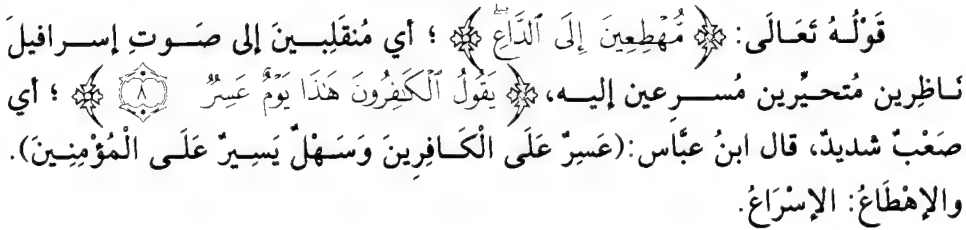 قَوْلُهُ تَعَالَى: ﴿مُّهْطِعِينَ إِلَى ٱلدَّاعِ﴾ ؛ أي مُنقَلِبينَ إلى صَوتِ إسرافيلَ
نَاظِرين مُتحيِّرين مُسرِعين إليه، ﴿يَقُولُ ٱلْكَٰفِرُونَ هَٰذَا يَوْمٌ عَسِرٌ ٨﴾ ؛ أي
صَعْبٌ شديدٌ، قال ابنُ عبَّاس: (عَسِرٌ عَلَى الْكَافِرِينَ وَسَهْلٌ يَسِيرٌ عَلَى الْمُؤْمِنِينَ).
والإهْطَاعُ: الإسْرَاعُ.